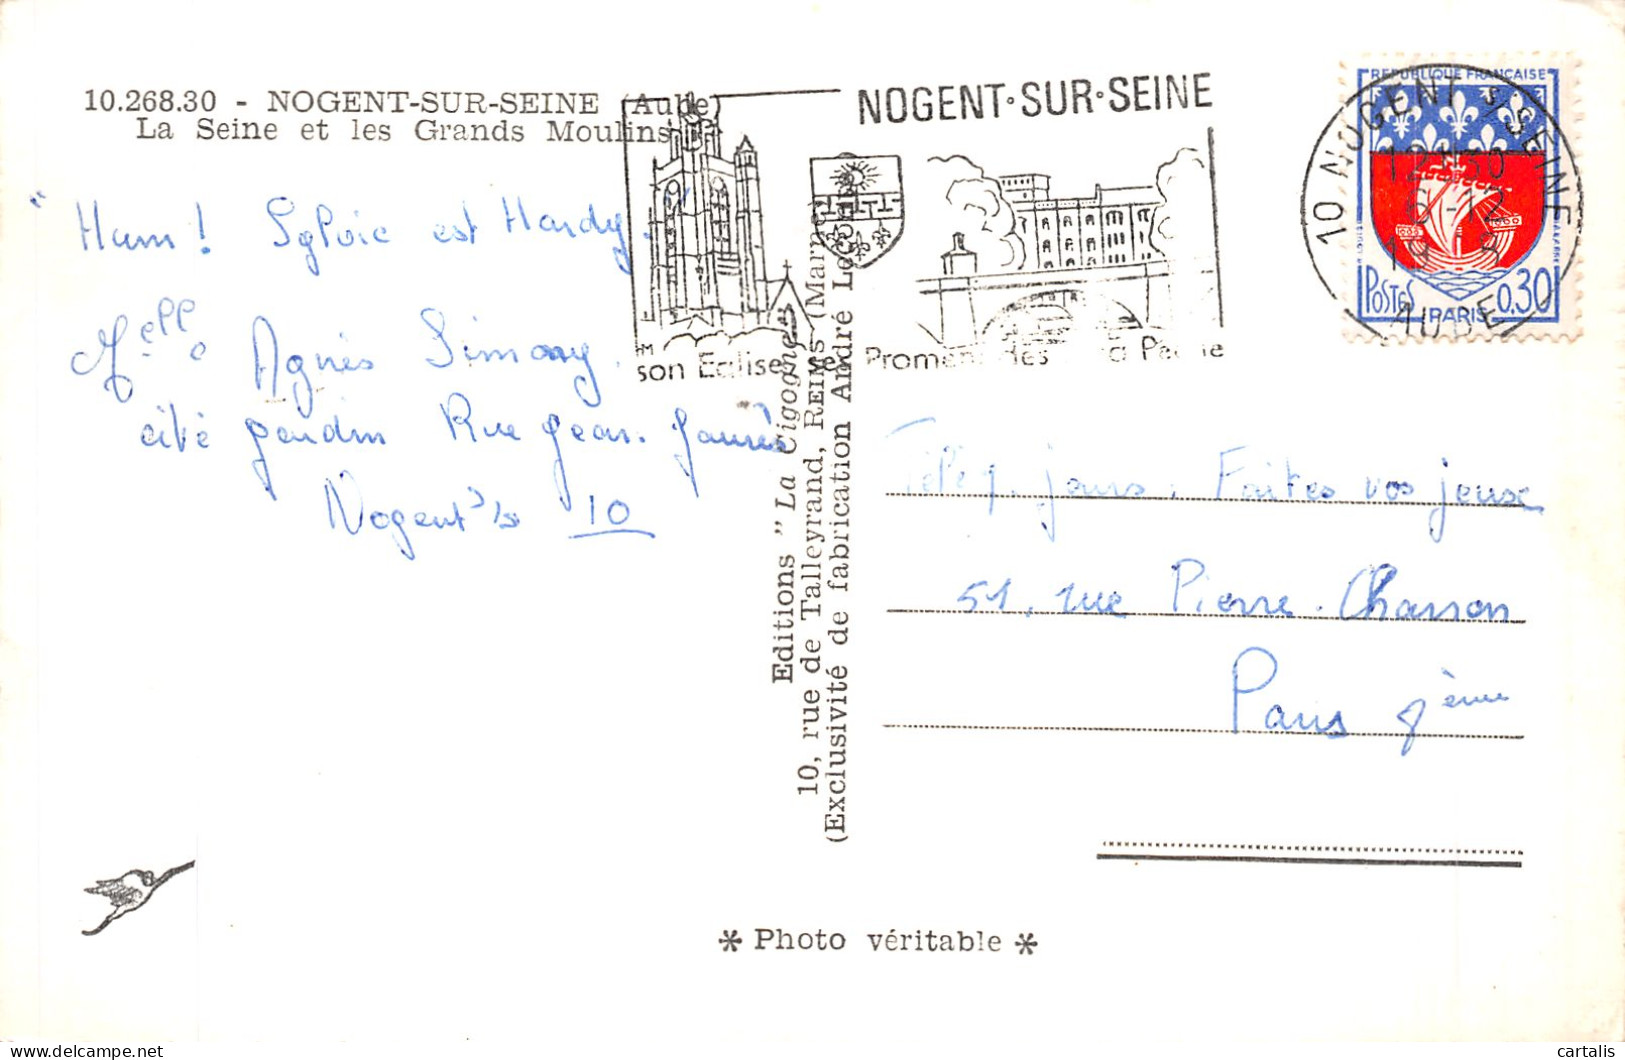 10.268.30 - NOGENT-SUR-SEINE (Aube)
La Seine et les Grands Moulins
NOGENT·SUR·SEINE
son Eglise ses Promenades
REPUBLIQUE FRANÇAISE
POSTES PARIS 0,30
10 NOGENT S/SEINE
12H30
6-12
AUBE
" Hum ! Sylvie est Hardy. "
Melle Agnès Simony.
cité jardin Rue Jean. Jaurès
Nogent s/s 10
Editions " La Cigogne "
10, rue de Talleyrand, REIMS (Marne)
(Exclusivité de fabrication André Leconte
Télé 7. jours. Faites vos jeux
51. rue Pierre. Charron
Paris 8ème
* Photo véritable *
cartalis